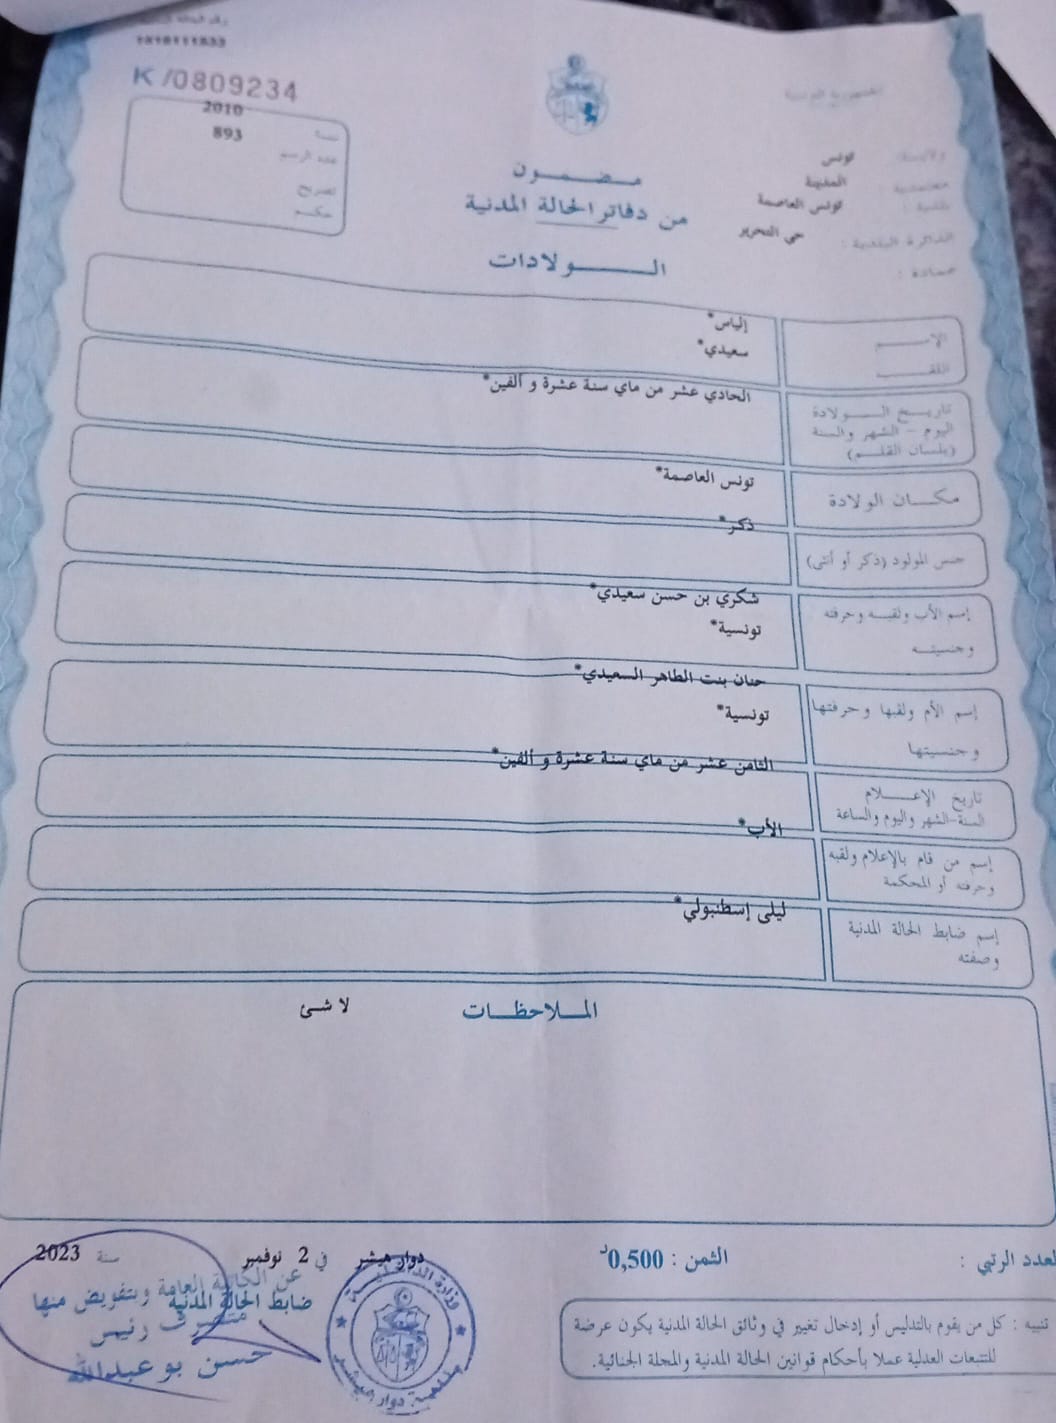 الجمهورية التونسية
ولاية: تونس
معتمدية: المدينة
بلدية: تونس العاصمة
الدائرة البلدية: حي التحرير
عمادة:
K/0809234
سنة 2010
عدد الرسم 893
تصريح
حكم
مضمون
من دفاتر الحالة المدنية
الولادات
الإسم إلياس*
اللقب سعيدي*
تاريخ الولادة الحادي عشر من ماي سنة عشرة و ألفين*
اليوم - الشهر والسنة
(بلسان القلم)
مكان الولادة تونس العاصمة*
جنس المولود (ذكر أو أنثى) ذكر*
إسم الأب ولقبه وحرفته شكري بن حسن سعيدي*
وجنسيته تونسية*
إسم الأم ولقبها وحرفتها حنان بنت الطاهر السعيدي*
وجنسيتها تونسية*
تاريخ الإعلام الثامن عشر من ماي سنة عشرة و ألفين*
السنة-الشهر واليوم والساعة
إسم من قام بالإعلام ولقبه الأب*
وحرفته أو المحكمة
إسم ضابط الحالة المدنية ليلى إسطنبولي*
وصفته
الملاحظات لا شئ
العدد الرتبي :
الثمن : 0,500د
دوار هيشر في 2 نوفمبر سنة 2023
ضابط الحالة المدنية
عن الكاتبة العامة وبتفويض منها
متصرف رئيس
حسن بو عبدالله
وزارة الداخلية
بلدية دوار هيشر
تنبيه : كل من يقوم بالتدليس أو إدخال تغيير في وثائق الحالة المدنية يكون عرضة
للتتبعات العدلية عملا بأحكام قوانين الحالة المدنية والمجلة الجنائية.